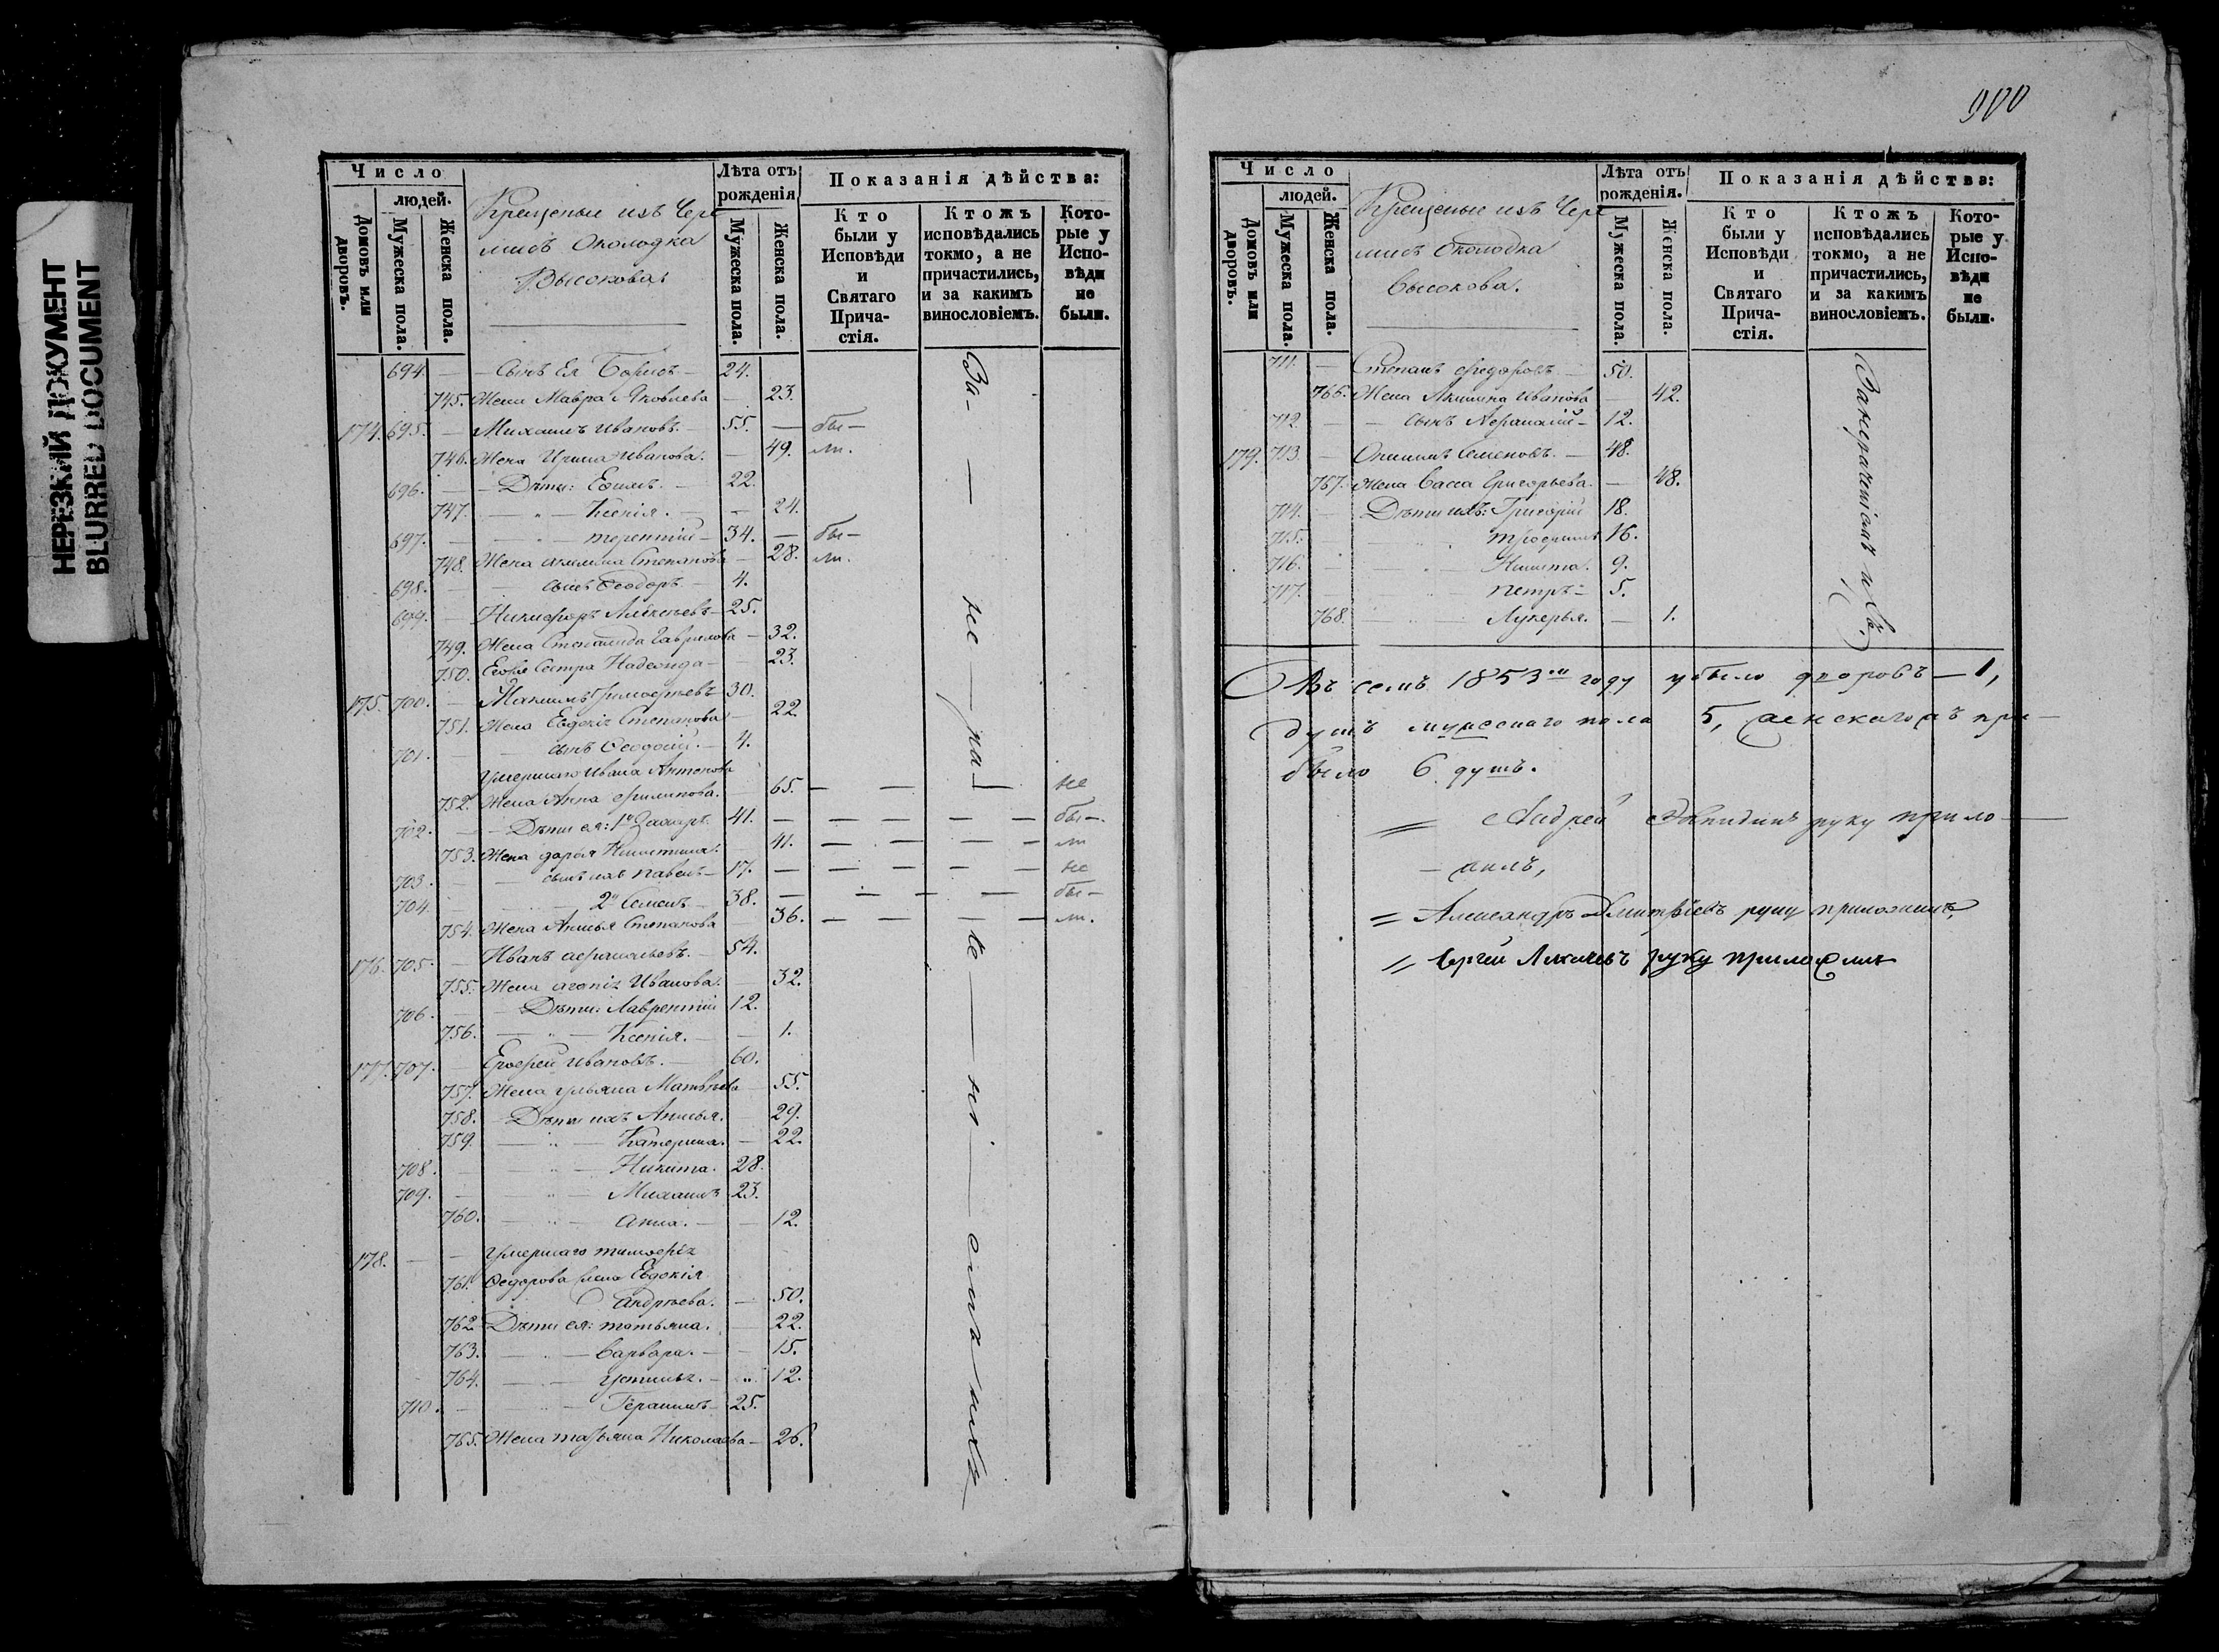 НЕРЕЗКИЙ ДОКУМЕНТ
BLURRED DOCUMENT
Число
людей.
Домовъ или дворовъ.
Мужеска пола.
Женска пола.
Крещеные изъ Чере
мисъ Околодка
Высокова
Лѣта отъ рожденія
Мужеска пола.
Женска пола.
Показанія дѣйства:
Кто были у Исповѣди и Святаго Прича-стія.
Ктожъ исповѣдались токмо, а не причастились, и за какимъ винословіемъ.
Кото-рые у Испо-вѣди не были.
694. — Сынъ Ея Борисъ — 24.
745. Жена Мавра Яковлева — 23.
174. 695. — Михаилъ Ивановъ. — 55. — бы —
746. Жена Ирина Иванова. — 49. ли.
696. — Дѣти: Ефимъ. — 22.
747. — " — Ксенія. — 24.
697. — " — Терентій — 34. — бы —
748. Жена Акилина Степанова — 28. ли.
698. — сынъ Ѳеодоръ. — 4.
699. — Никифоръ Алексѣевъ — 25.
749. Жена Степанида Гаврилова — 32.
750. Его же Сестра Надежда — 23.
175. 700. — Максимъ Тимофѣевъ 30.
751. Жена Евдокія Степанова — 22
701. — сынъ Ѳеодосій. — 4.
Умершаго Ивана Антонова
752. Жена Анна Филипова. — 65. — — — не
702. — Дѣти ея: 1й Захаръ. 41. — — — — — бы —.
753. Жена Дарья Никитина. — 41. — — — — ли
703. — сынъ ихъ Павелъ — 17. — — — — — не
704. — " — 2й Семенъ — 38. — — — — бы —
754. Жена Анисья Степанова — 36. — — — — ли.
176. 705. — Иванъ Афанасьевъ. — 54.
755. Жена Агафія Иванова. — 32.
706. — Дѣти: Лаврентій 12.
756. — " — Ксенія. — 1.
177. 707. — Ерофей Ивановъ. — 60.
757. Жена Ульяна Матвѣева — 55.
758. — Дѣти ихъ Анисья. — 29.
759. — " — Катерина. — 22.
708. — " — Никита. 28.
709. — " — Михаилъ 23.
760. — " — Анна. — 12.
178. — — Умершаго Тимофея
761. Ѳедорова жена Евдокія
Андрѣева. — 50.
762 Дѣти ея: Татьяна. — 22.
763. — " — Варвара. — 15.
764. — " — Устинья. — 12.
710. — " — Герасимъ 25.
765. Жена Татьяна Николаева — 26.
За — не — ра — —
900
Число
людей.
Домовъ или дворовъ.
Мужеска пола.
Женска пола.
Крещеные изъ Чере
мисъ Околодка
Высокова.
Лѣта отъ рожденія.
Мужеска пола.
Женска пола.
Показанія дѣйства:
Кто были у Исповѣди и Святаго Прича-стія.
Ктожъ исповѣдались токмо, а не причастились, и за какимъ винословіемъ.
Кото-рые у Испо-вѣди не были.
711. — Степанъ Федоровъ — 50.
766. Жена Акилина Иванова — 42.
712. — сынъ Афанасій — 12.
179. 713. — Онисимъ Семеновъ. — 48.
767. Жена Васса Григорьева. — 48.
714. — Дѣти ихъ: Григорій 18.
715. " Трофимъ 16.
716. — " Никита. 9.
717. " Петръ — 5.
768. — Лукерья. — 1.
Въ семъ 1853мъ году убыло дворовъ — 1,
душъ мужескаго пола 5, женскагожъ при —
было 6 душъ.
= Андрей руку прило —
— жилъ,
= Александръ Дмитріевъ руку приложилъ,
= Сергѣй руку приложилъ